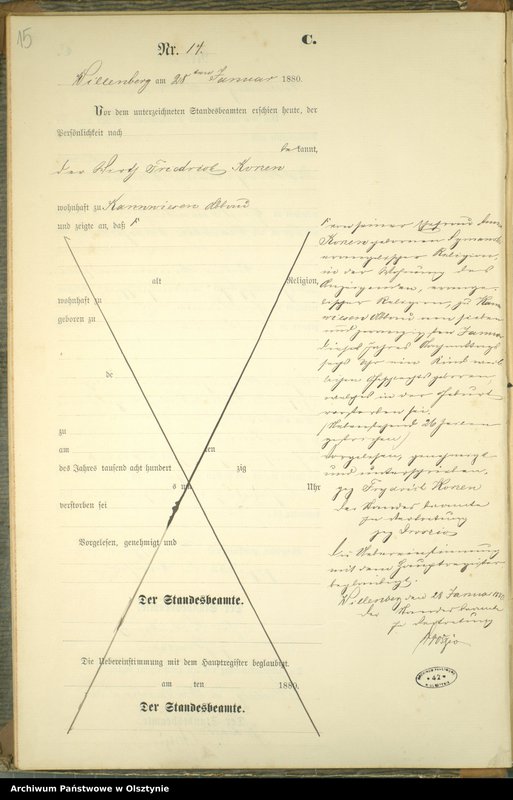 15
C.
Nr. 14.
Willenberg am 28 ten Januar 1880.
Vor dem unterzeichneten Standesbeamten erschien heute, der
Persönlichkeit nach
bekannt,
der Wirth Friedrich Konen
wohnhaft zu
und zeigte an, daß
alt Religion,
wohnhaft zu
geboren zu
de
zu
am ten
des Jahres tausend acht hundert zig
s um Uhr
verstorben sei
Vorgelesen, genehmigt und
Der Standesbeamte.
Die Uebereinstimmung mit dem Hauptregister beglaubigt.
am ten 1880.
Der Standesbeamte.
von seiner Ehefrau
Konen geborenen
evangelischer Religion,
in der Wohnung des
Anzeigenden, evange-
lischer Religion, zu
am sieben
und zwanzigsten Janua
dieses Jahres Nachmittags
sechs Uhr ein Kind weib
lichen Geschlechts geboren,
welches in der Geburt
verstorben sei.
(Nebenstehend 26 Zeilen
gestrichen)
Vorgelesen, genehmigt
und unterschrieben.
gez Friedrich Konen
Der Standesbeamte
in Vertretung
gez
Die Uebereinstimmung
mit dem Hauptregister
beglaubigt.
Willenberg den 28 Januar 1880
Der Standesbeamte
in Vertretung
42
Archiwum Państwowe w Olsztynie